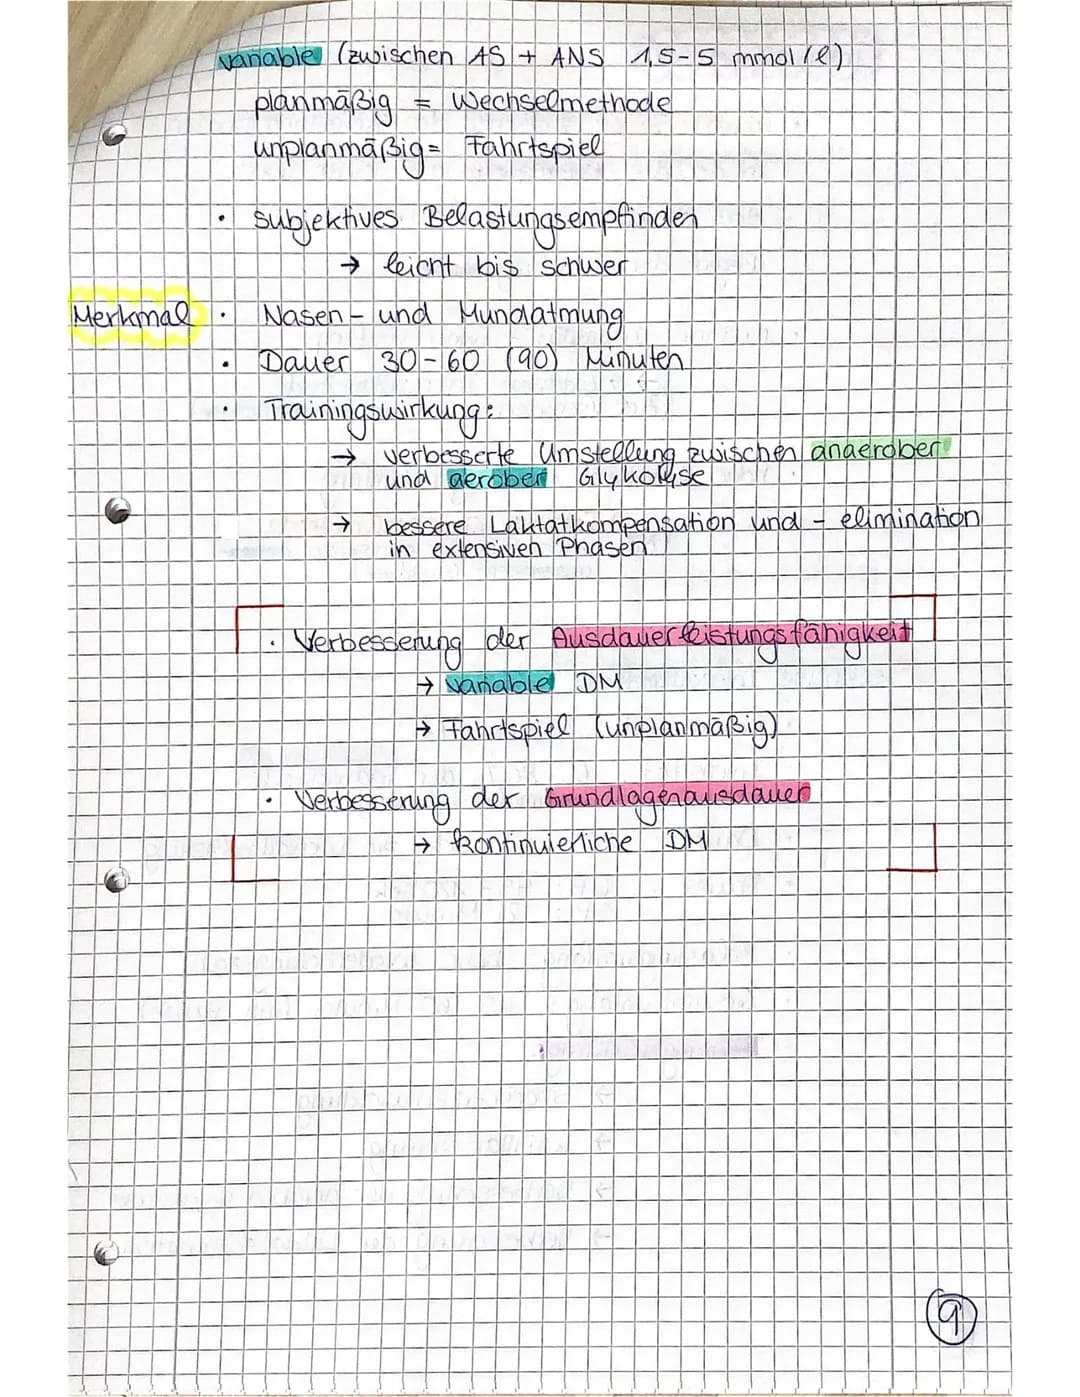 variable (zwischen AS + ANS 1,5-5 mmol/l)
planmäßig = Wechselmethode
unplanmäßig = Fahrtspiel
• subjektives Belastungsempfinden
→ leicht bis schwer
Merkmal • Nasen- und Mundatmung
• Dauer 30-60 (90) Minuten
• Trainingswirkung:
→ verbesserte Umstellung zwischen anaerober
und aerober Glykolyse
→ bessere Laktatkompensation und -elimination
in extensiven Phasen
• Verbesserung der Ausdauerleistungsfähigkeit
→ variable DM
→ Fahrtspiel (unplanmäßig)
• Verbesserung der Grundlagenausdauer
→ kontinuierliche DM
9